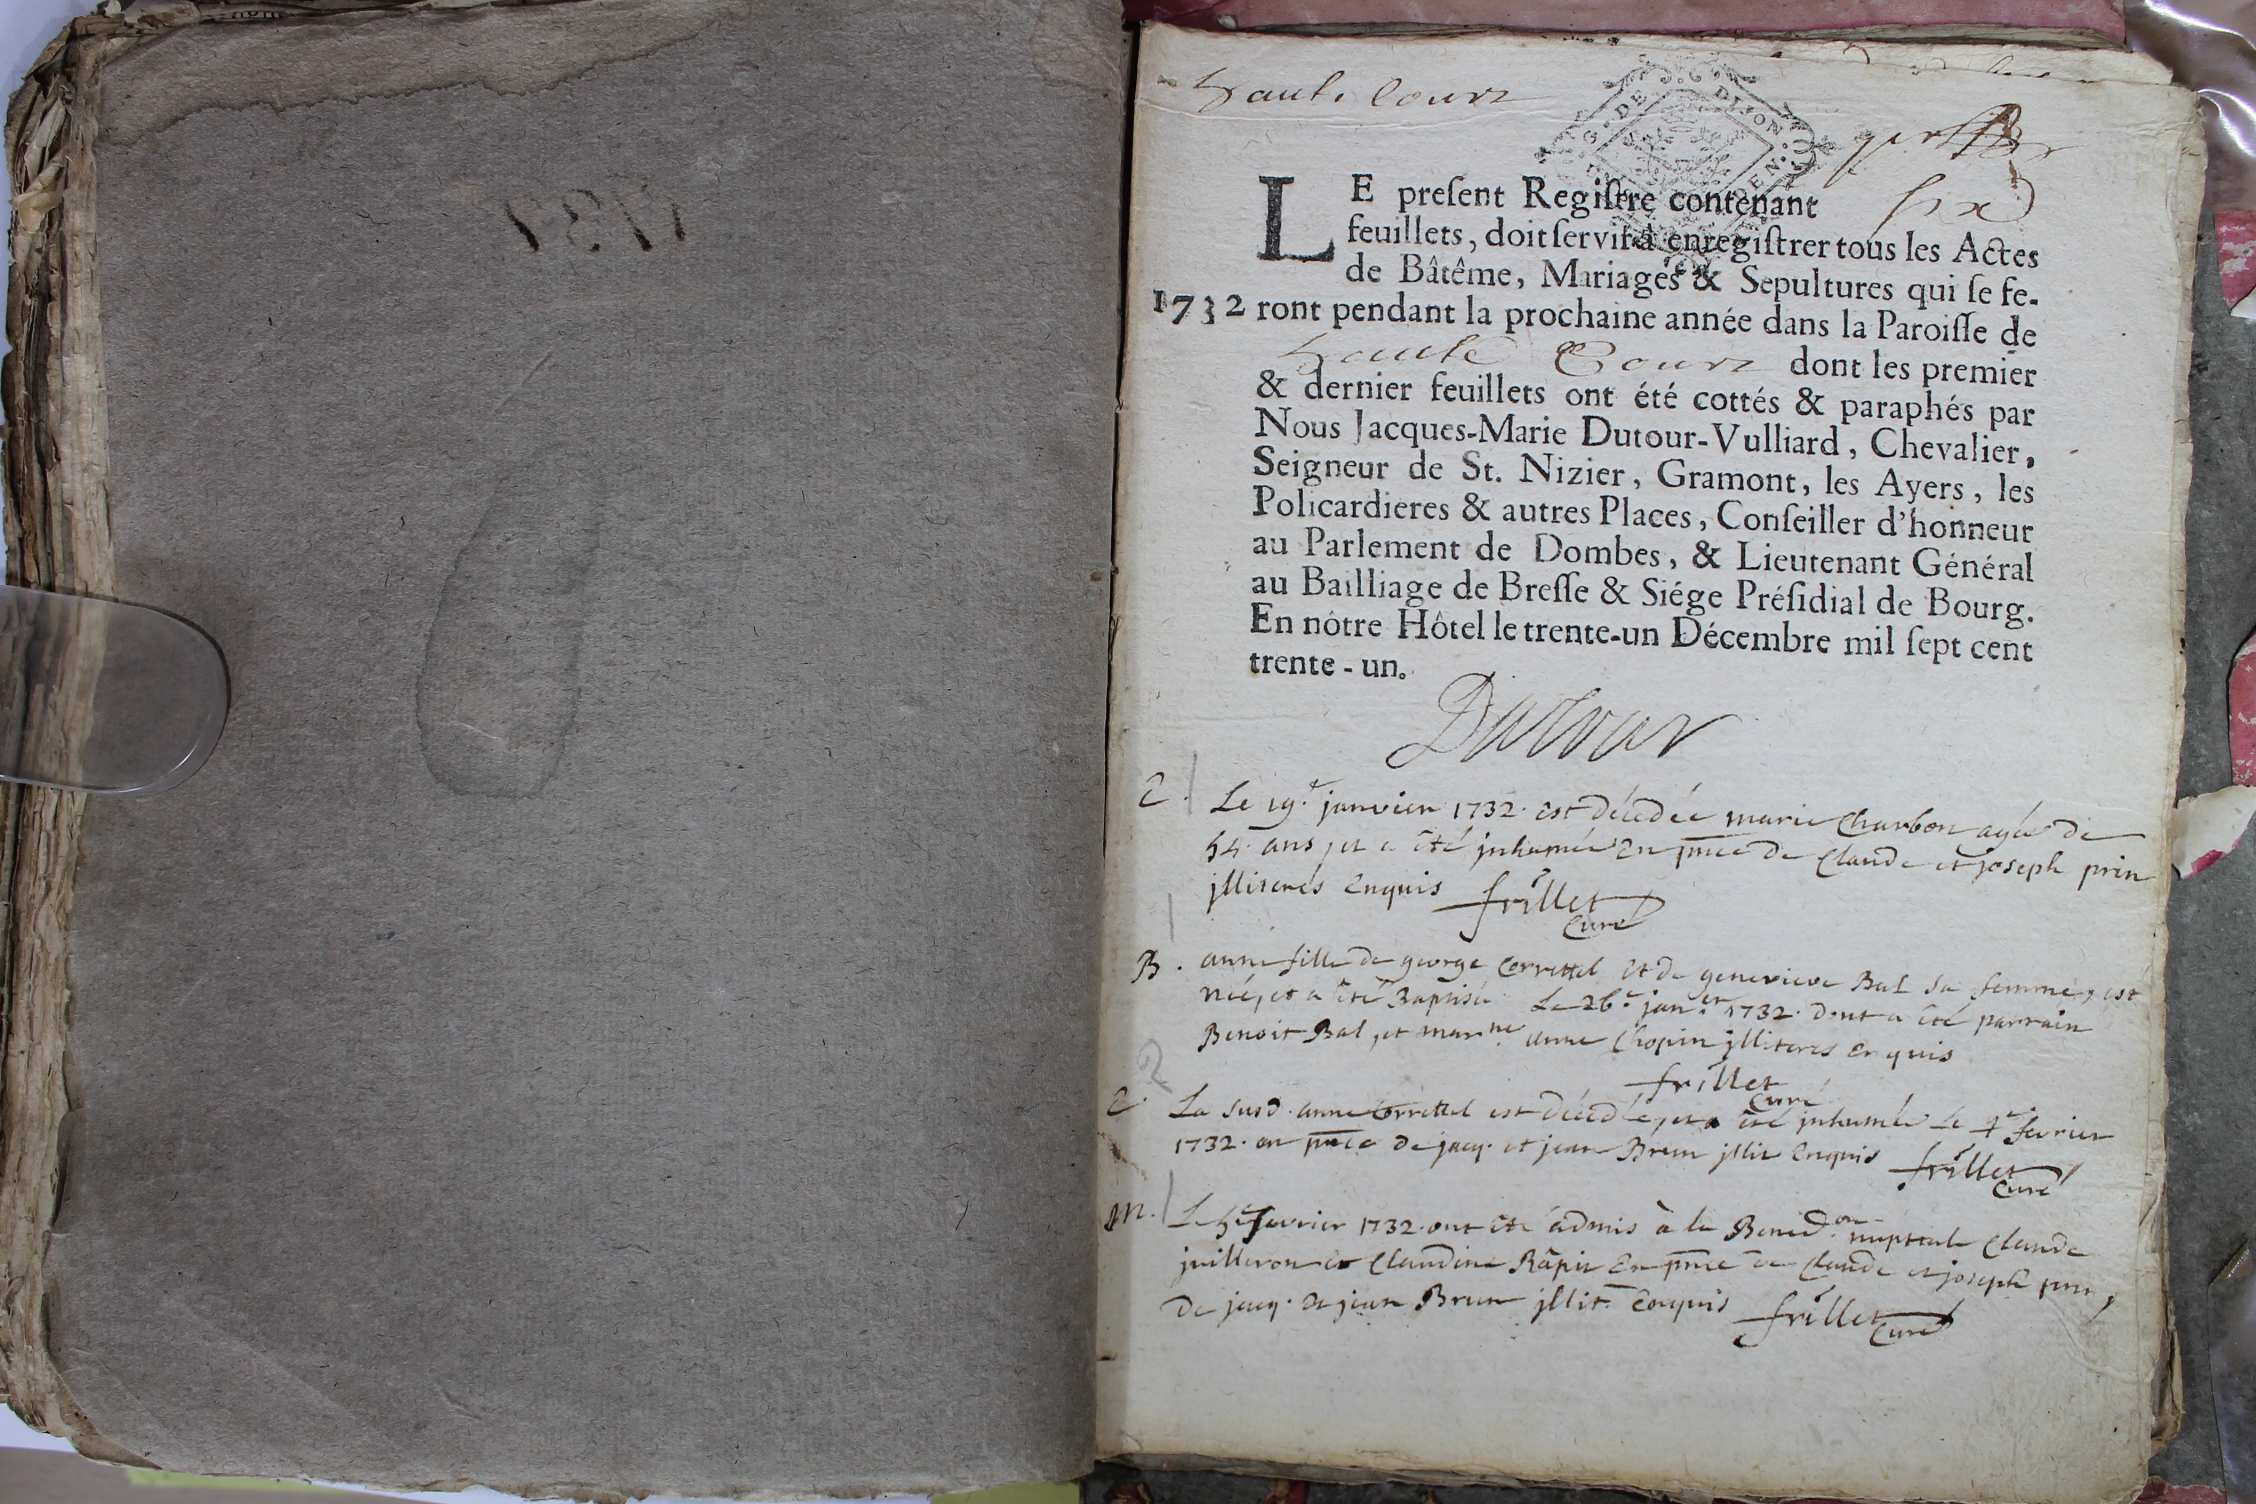 1732
haute Courz
G. DE DIJON
LE preſent Regiſtre contenant six
feuillets, doit ſervir à enregiſtrer tous les Actes
de Bâtême, Mariages & Sepultures qui ſe fe-
1732 ront pendant la prochaine année dans la Paroiſſe de
haute Courz dont les premier
& dernier feuillets ont été cottés & paraphés par
Nous Jacques-Marie Dutour-Vulliard, Chevalier,
Seigneur de St. Nizier, Gramont, les Ayers, les
Policardieres & autres Places, Conſeiller d'honneur
au Parlement de Dombes, & Lieutenant Général
au Bailliage de Breſſe & Siége Préſidial de Bourg.
En nôtre Hôtel le trente-un Décembre mil ſept cent
trente-un.
Dutour
Le 19.e janvier 1732. est décédée marie Charbon agée de
54. ans, et a été jnhumée En pnce de Claude et joseph prin
jlliteres Enquis frillet
Curé
B. anne fille de george Correttel et de genevieve Bal sa femme, est
née, et a été Baptisée Le 26.e jan.er 1732. dont a été parrain
Benoit Bal, et marne anne Chopin jlliteres Enquis
frillet
Curé
La susd. anne Correttel est décédée, et a été jnhumée Le 4e fevrier
1732. en pnce de jacq. et jean Brun jllit Enquis frillet
Curé
M. Le 5e fevrier 1732. ont été admis à la Bened.on nuptiale Claude
juilleron et Claudine Râpit En pnce de Claude et joseph prin,
De jacq. et jean Brun jllit. Enquis frillet
Curé